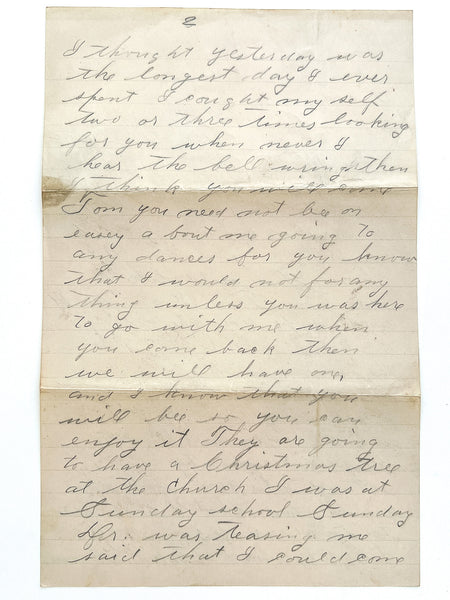 2
I thought yesterday was
the longest day I ever
spent I cought my self
two or three times looking
for you when never I
hear the bell wring then
I think you will come
Tom you need not bee on
easey a bout me going to
any dances for you know
that I would not for any
thing unless you was here
to go with me when
you come back then
we will have one
and I know that you
will bee so you can
enjoy it They are going
to have a Christmas tree
at the church I was at
Sunday school Sunday
Mr. was teasing me
said that I could come